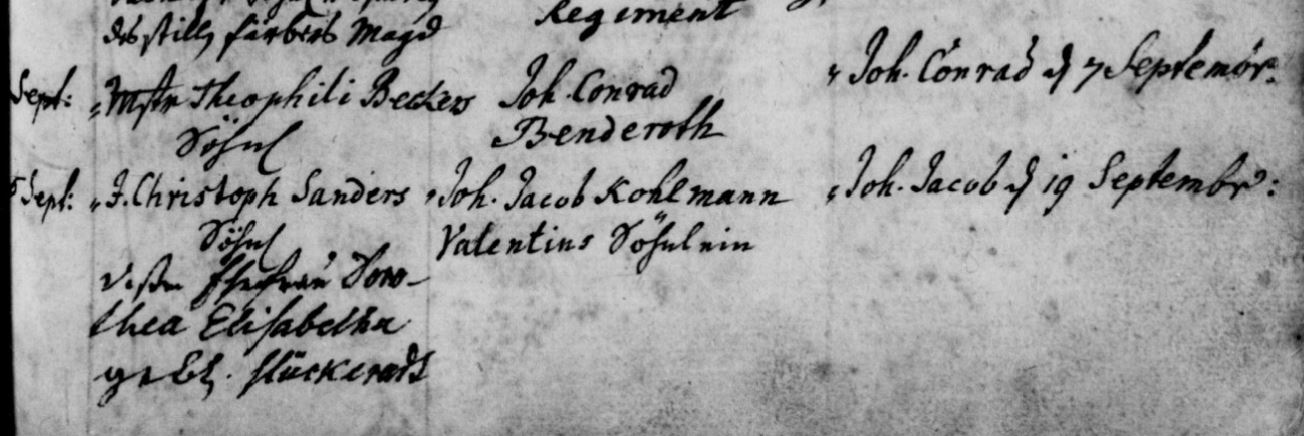 des still färbers Magd
Regiment
Sept: Mstr Theophili Beckers
Söhnl
Joh. Conrad
Benderoth
Joh. Conrad d 7 Septembr:
Sept: J. Christoph Sanders
Söhnl
dessen Ehefrau Doro-
thea Elisabetha
gebh. Stückeradt
Joh. Jacob Kohlmann
Valentins Söhnlein
Joh. Jacob d 19 Septembr: